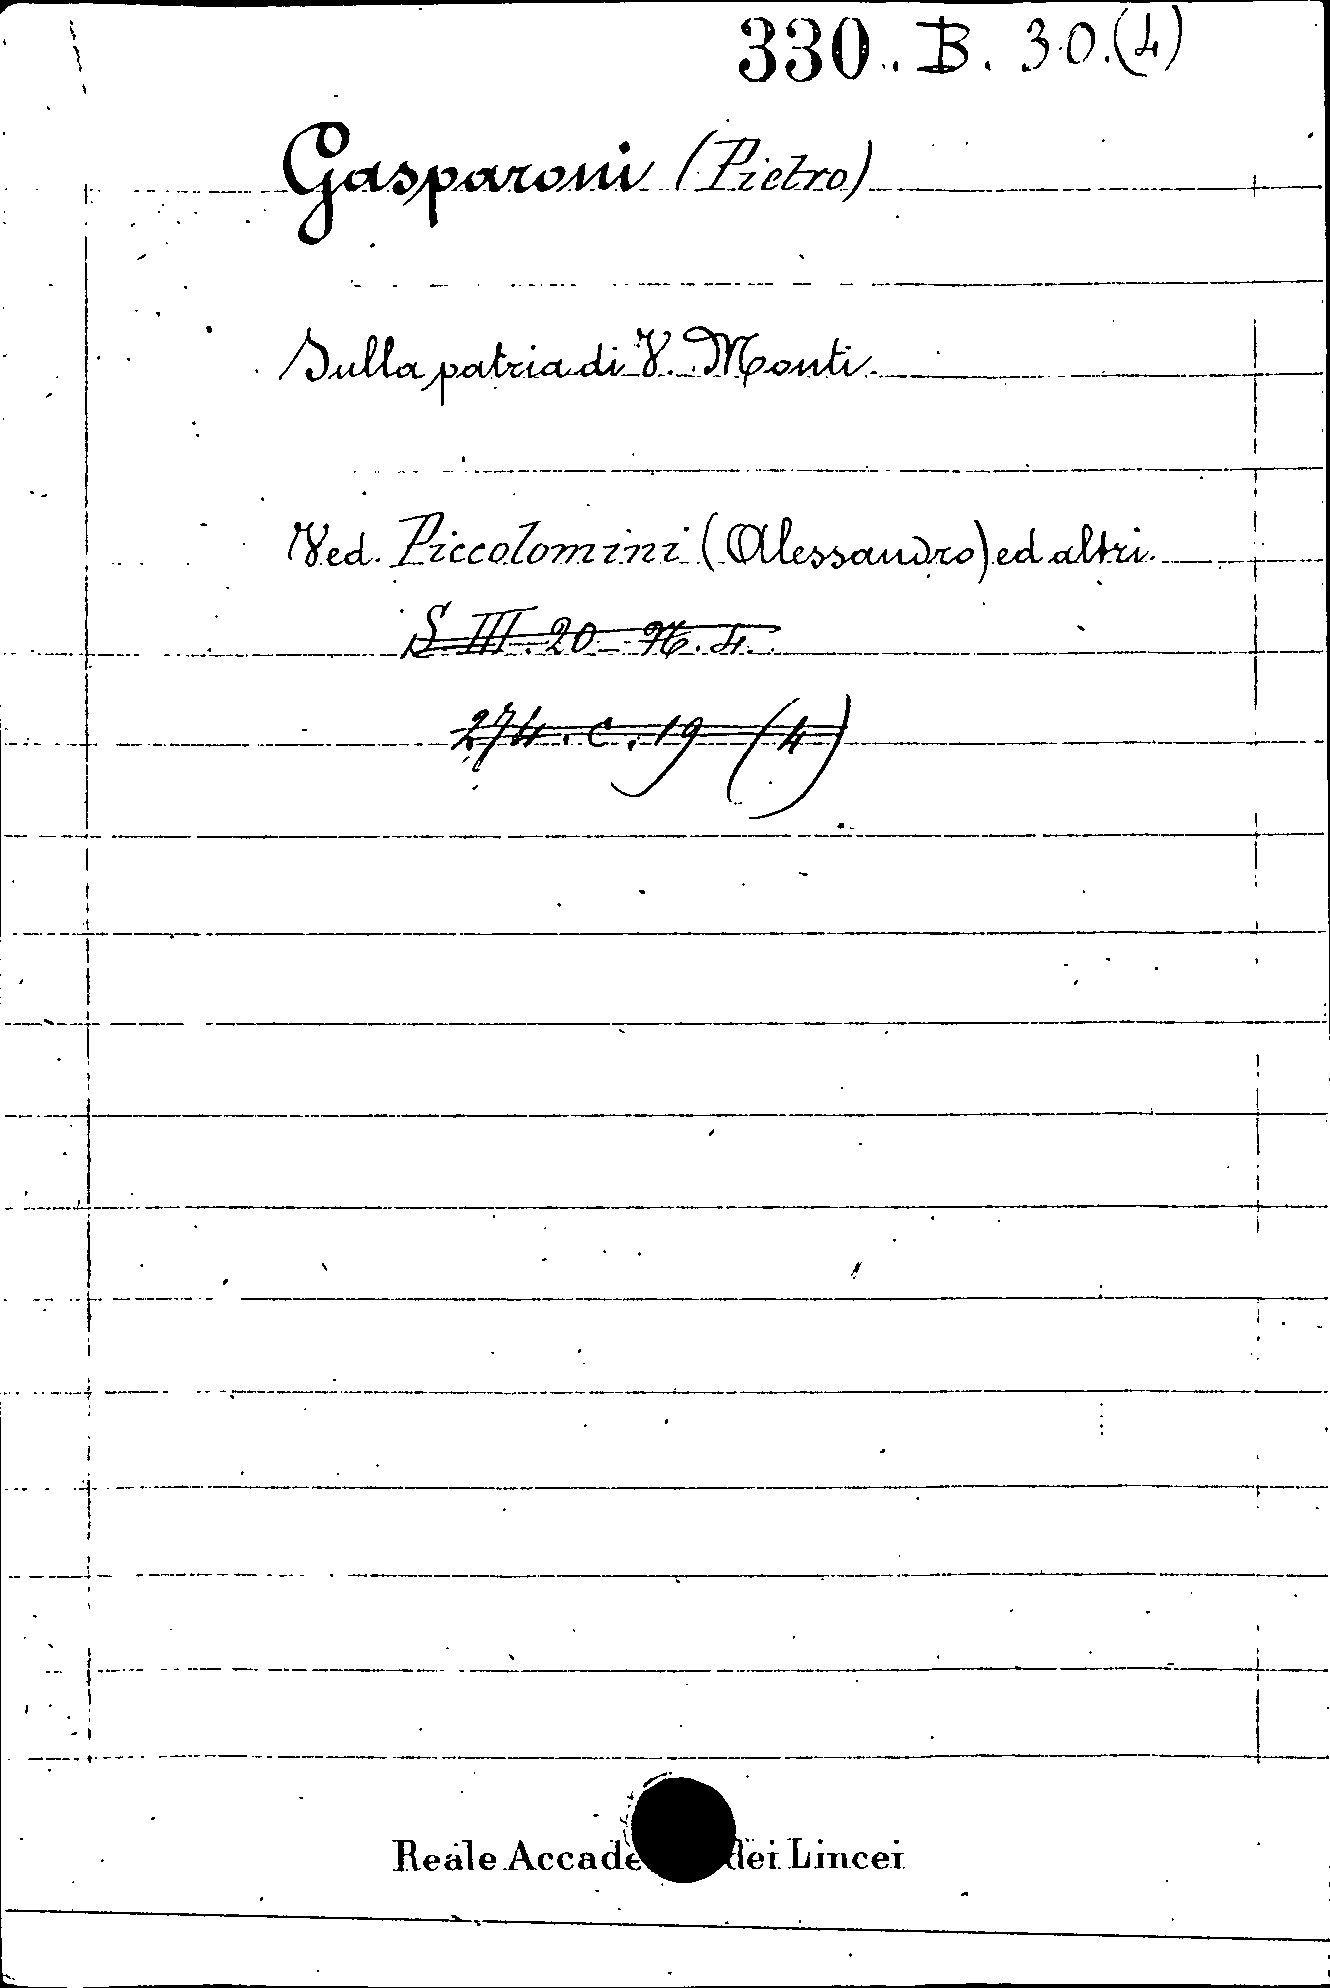 330. B. 30.(4)
Gasparoni (Pietro)
Sulla patria di V. Monti.
Ved. Piccolomini (Alessandro) ed altri.
S III. 20 - N. 4.
274. C. 19 (4)
Reale Accade dei Lincei